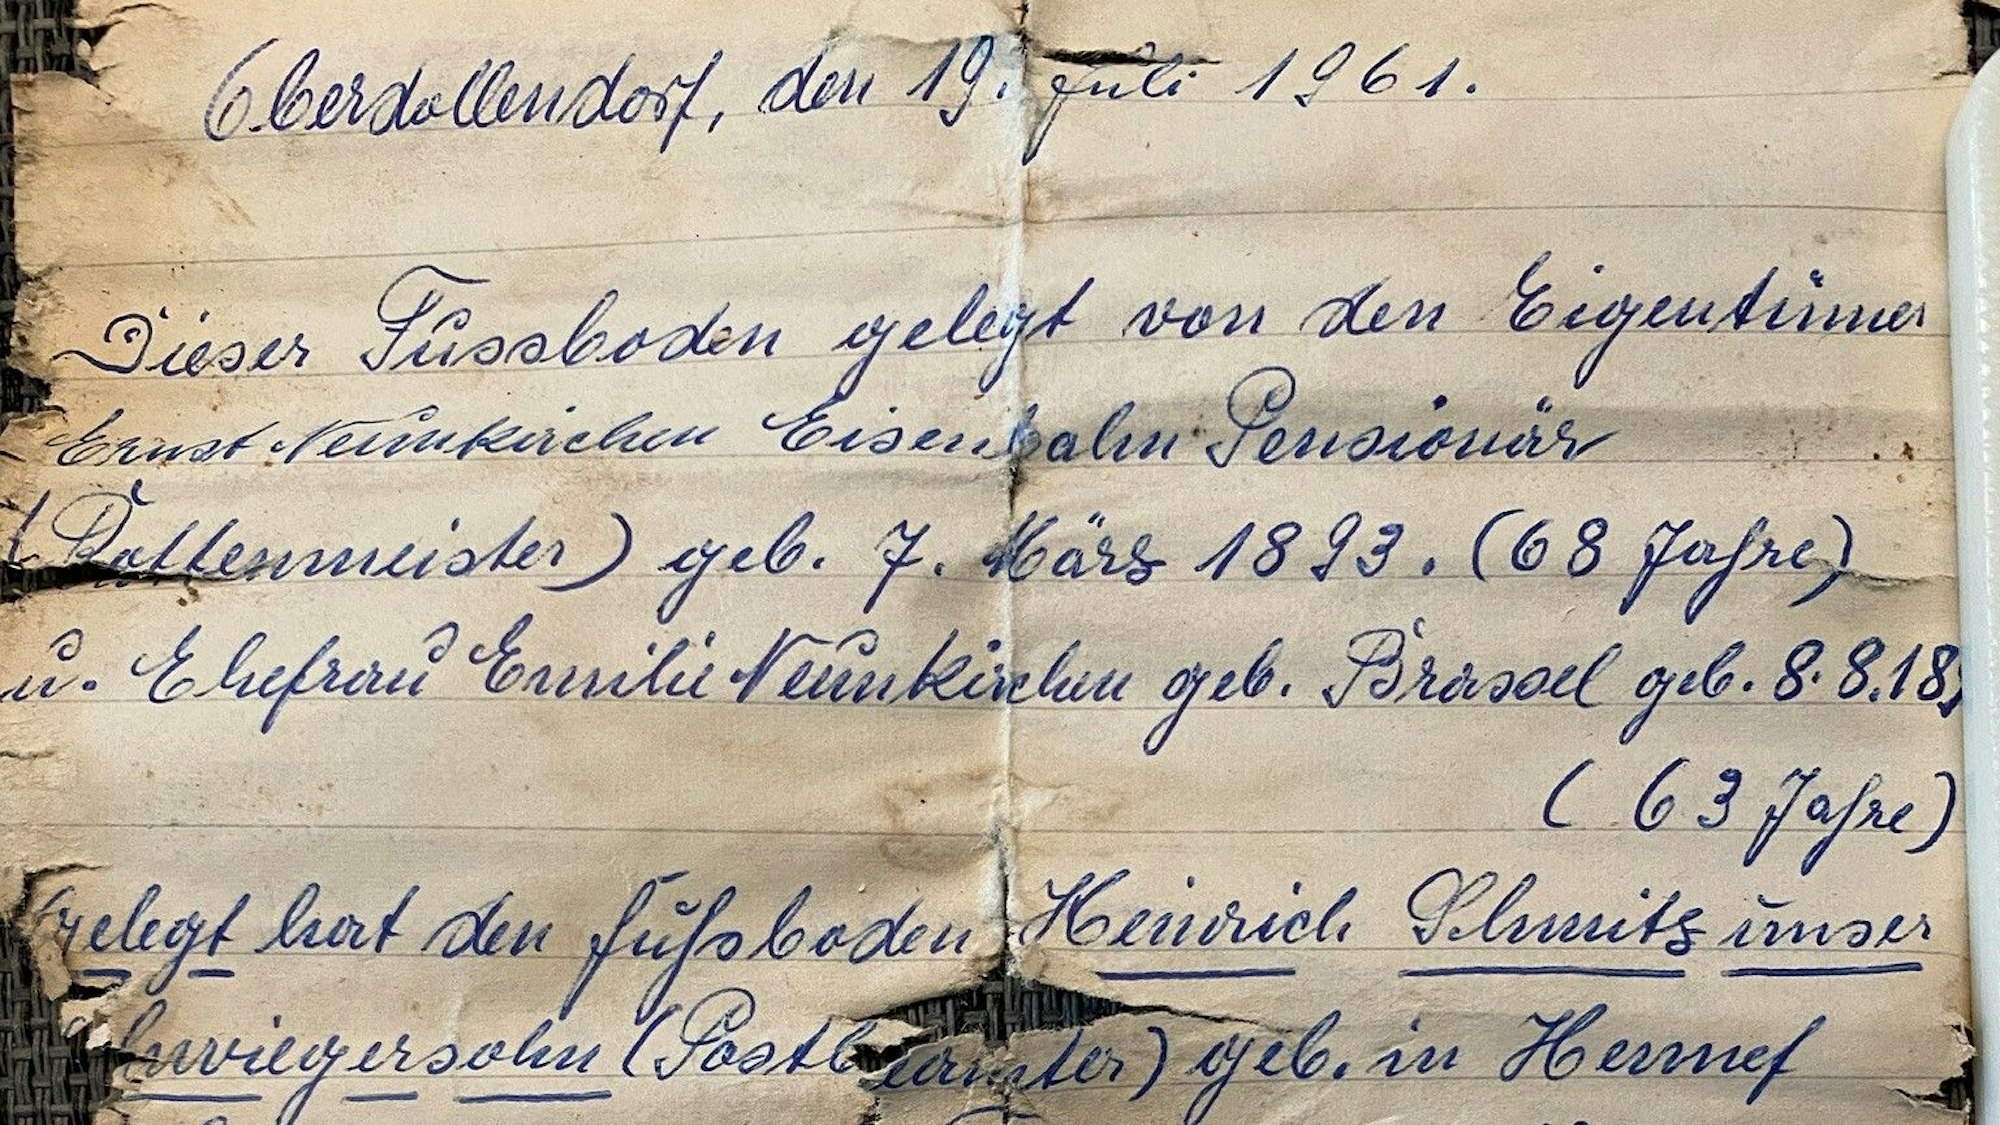 Oberdollendorf, den 19. Juli 1961.
Dieser Fussboden gelegt von den Eigentümer
Ernst Neunkirchen Eisenbahn Pensionär
(Rottenmeister) geb. 7. März 1893. (68 Jahre)
u. Ehefrau Emilie Neunkirchen geb. Brassel geb. 8.8.18
(63 Jahre)
Gelegt hat den fußsboden Heinrich Schmitz unser
hwiegersohn (Postbeamter) geb. in Hennef